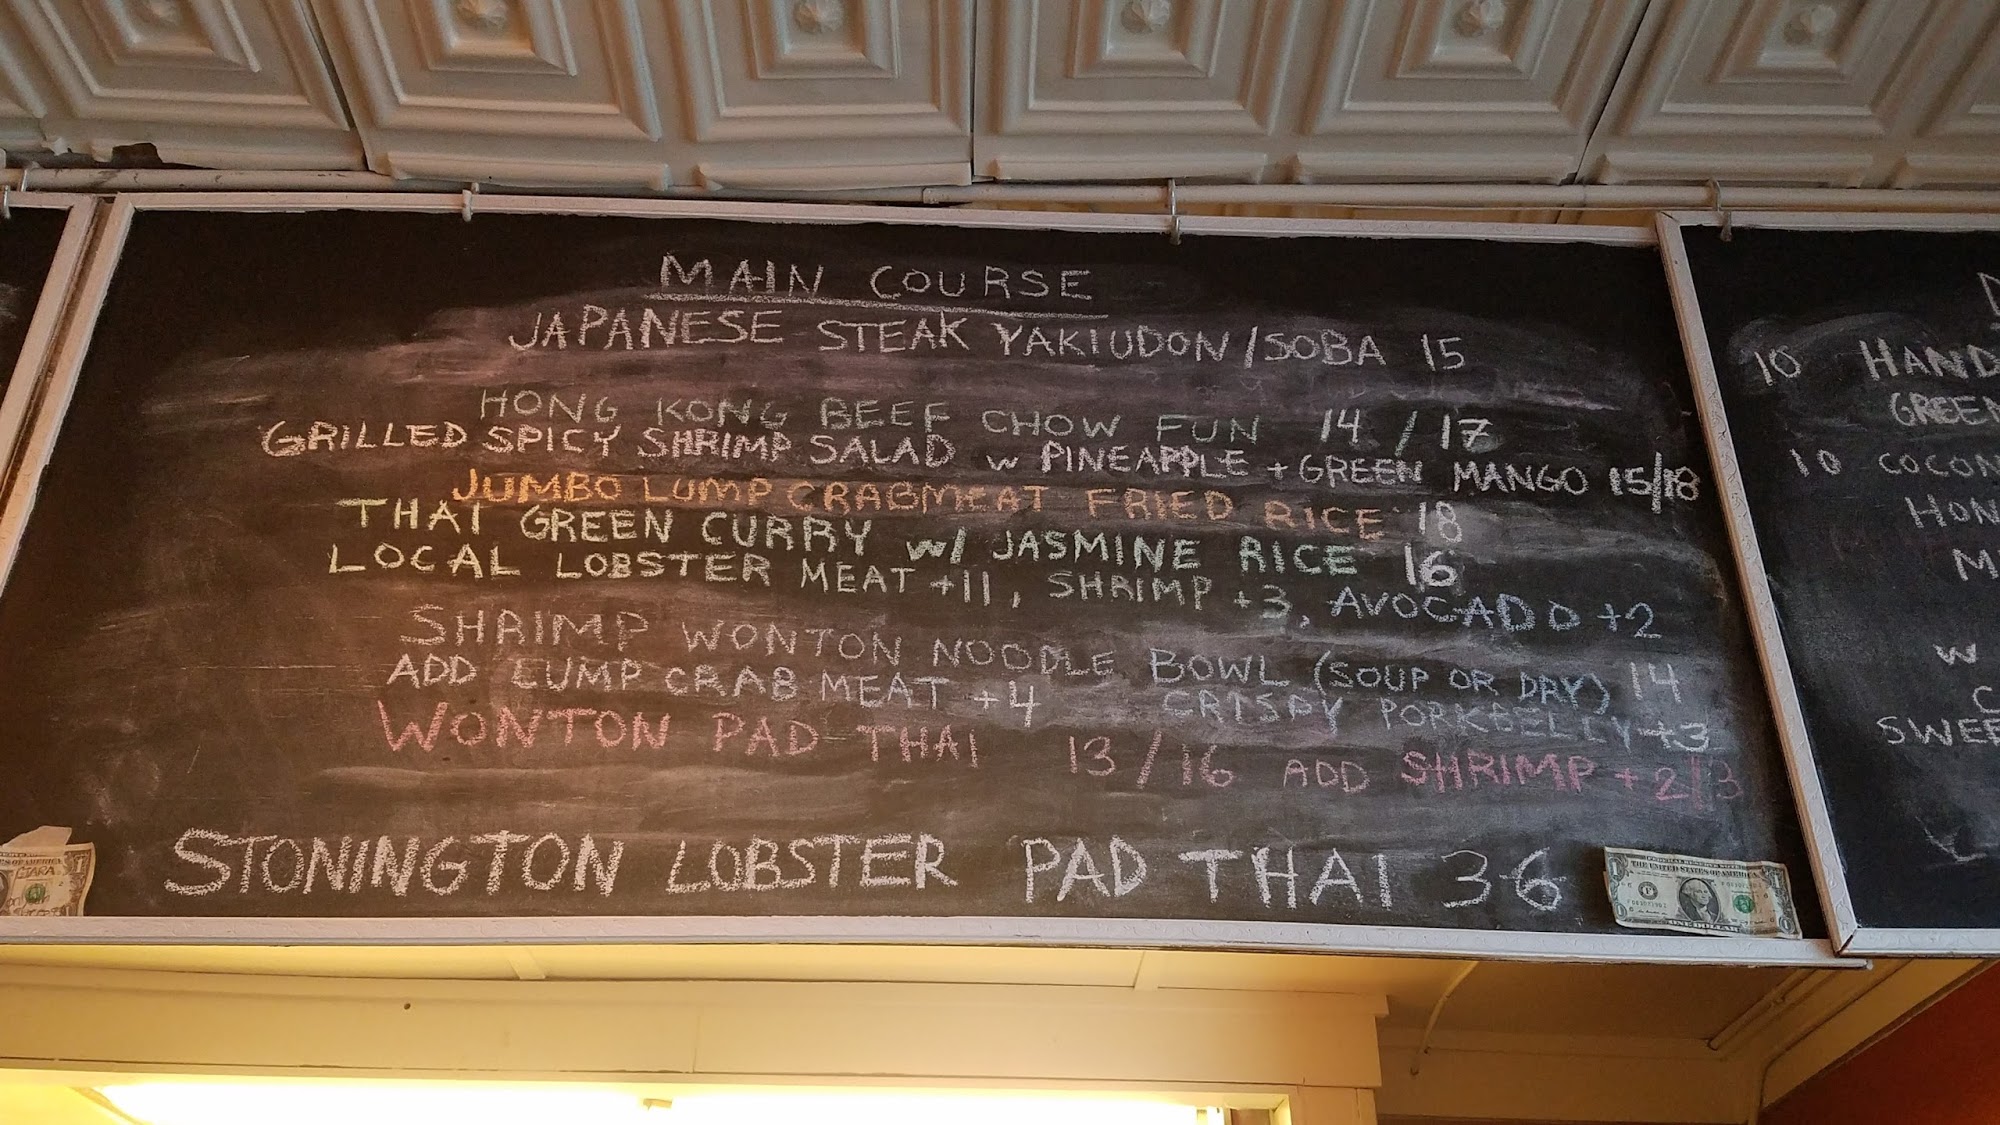 MAIN COURSE
JAPANESE STEAK YAKIUDON/SOBA 15
HONG KONG BEEF CHOW FUN 14 / 17
GRILLED SPICY SHRIMP SALAD w PINEAPPLE + GREEN MANGO 15/18
JUMBO LUMP CRABMEAT FRIED RICE 18
THAI GREEN CURRY w/ JASMINE RICE 16
LOCAL LOBSTER MEAT +11, SHRIMP +3, AVOCADO +2
SHRIMP WONTON NOODLE BOWL (SOUP OR DRY) 14
ADD LUMP CRAB MEAT +4 CRISPY PORKBELLY +3
WONTON PAD THAI 13/16 ADD SHRIMP +2/3
STONINGTON LOBSTER PAD THAI 36
10 HAND
GREEN
10 COCON
HON
M
w
C
SWEE
THE UNITED STATES OF AMERICA
ONE DOLLAR
CIARA